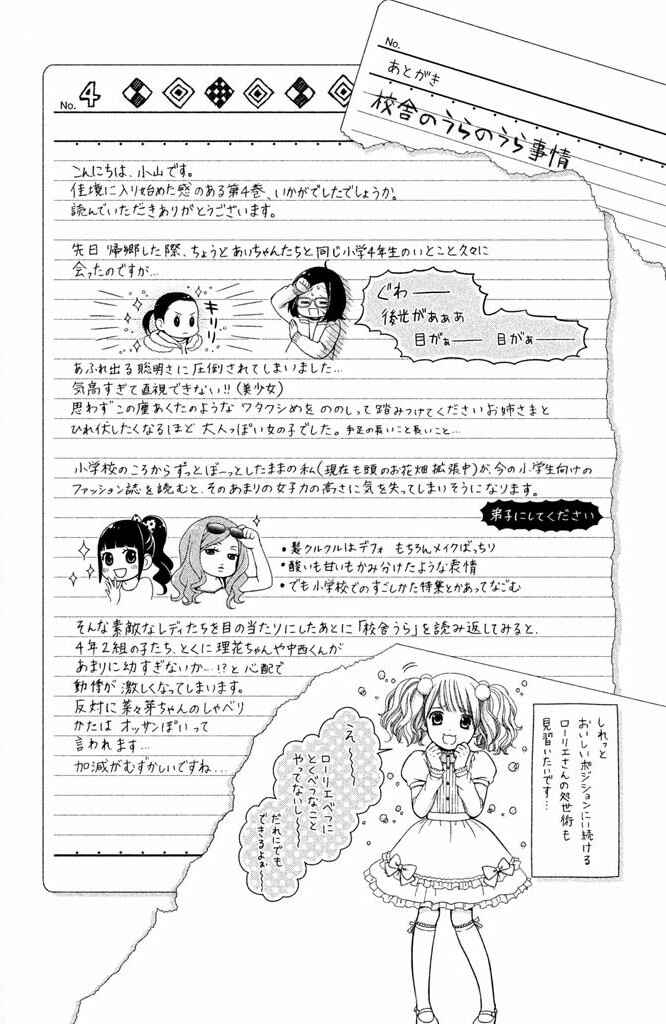 No.
あとがき
校舎のうらのうら事情
No. 4
こんにちは、小山です。
佳境に入り始めた感のある第4巻、いかがでしたでしょうか。
読んでいただきありがとうございます。
先日帰郷した際、ちょうどあいちゃんたちと同じ小学4年生のいとこと久々に
会ったのですが…
キリリ
ぐわ――
後光がぁぁぁ
目がぁ―― 目がぁ――
あふれ出る聡明さに圧倒されてしまいました…
気高すぎて直視できない!!(美少女)
思わずこの塵あくたのようなワタクシめをののしって踏みつけてくださいお姉さまと
ひれ伏したくなるほど大人っぽい女の子でした。手足の長いこと長いこと…
小学校のころからずっとぼーっとしたままの私(現在も頭のお花畑拡張中)が、今の小学生向けの
ファッション誌を読むと、そのあまりの女子力の高さに気を失ってしまいそうになります。
弟子にしてください
・髪クルクルはデフォ もちろんメイクばっちり
・酸いも甘いもかみ分けたような表情
・でも小学校でのすごしかた特集とかあってなごむ
そんな素敵なレディたちを目の当たりにしたあとに「校舎うら」を読み返してみると、
4年2組の子たち、とくに理花ちゃんや中西くんが
あまりに幼すぎないか…!?と心配で
動悸が激しくなってしまいます。
反対に菜々芽ちゃんのしゃべり
かたはオッサンぽいって
言われます…
加減がむずかしいですね…
え〜〜〜
ローリエべつに
とくべつなこと
やってないし〜〜
だれにでも
できるよぉ〜〜
しれっと
おいしいポジションにい続ける
ローリエさんの処世術も
見習いたいです…